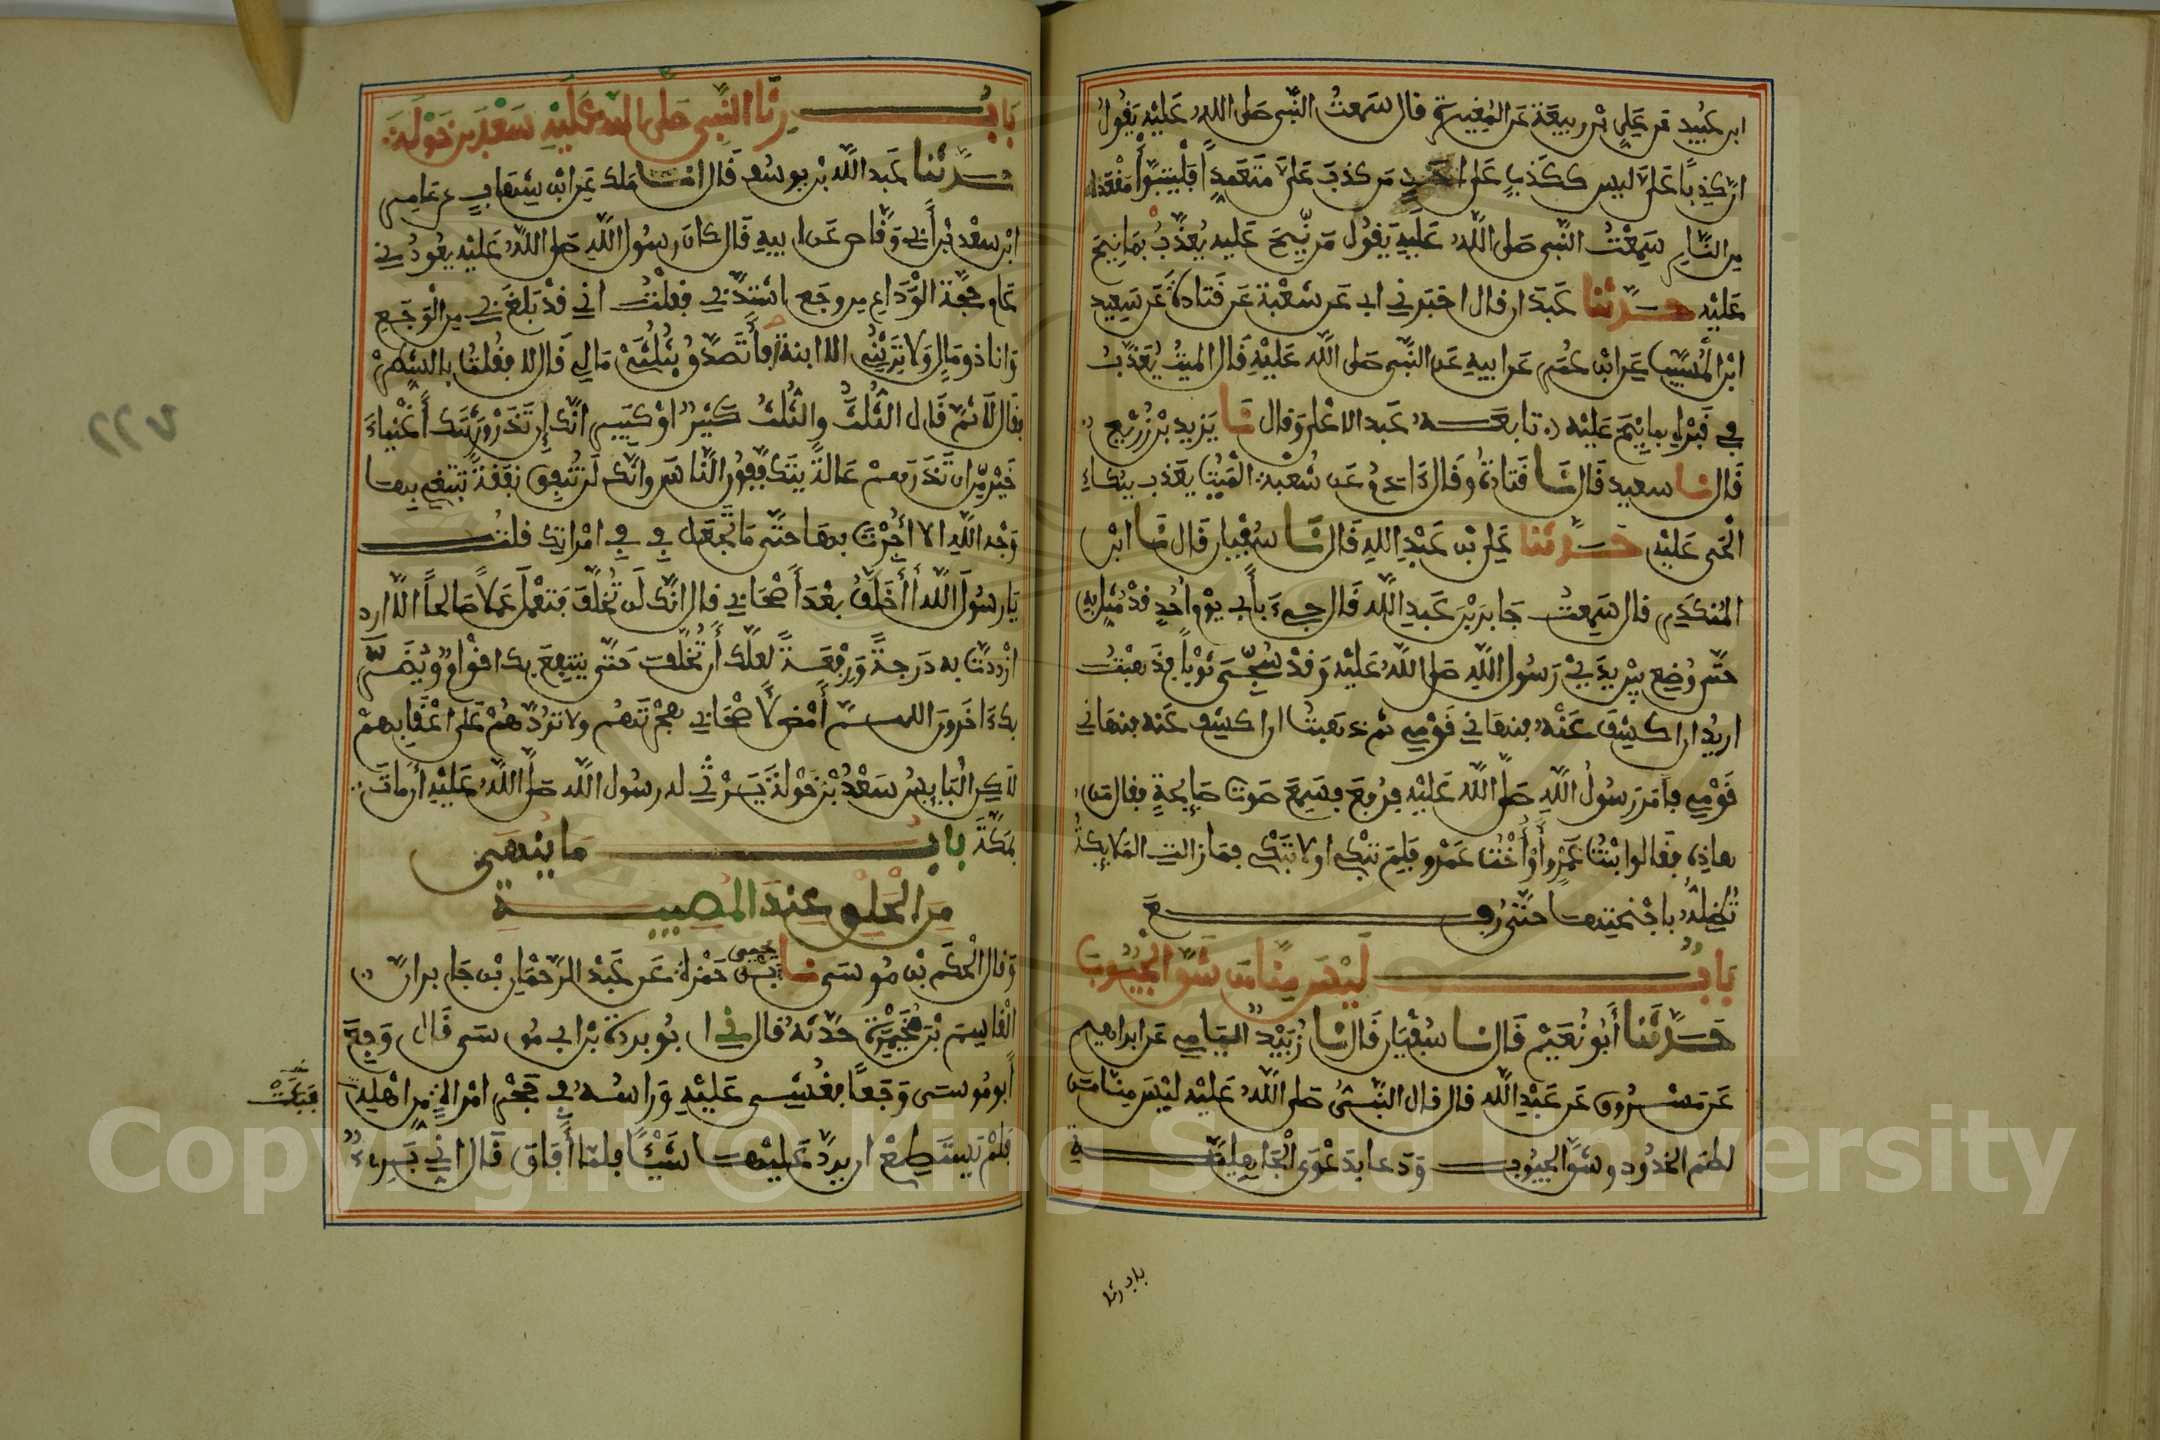 ابن عبيد عن علي بن ربيعة عن المغيرة قال سمعت النبي صلى الله عليه يقول
ان كذبا علي ليس ككذب على احد من كذب علي متعمدا فليتبوأ مقعده
من النار سمعت النبي صلى الله عليه يقول من نيح عليه يعذب بما نيح
عليه حدثنا عبدان قال اخبرني ابي عن شعبة عن قتادة عن سعيد
ابن المسيب عن ابن عمر عن ابيه عن النبي صلى الله عليه قال الميت يعذب
في قبره بما نيح عليه تابعه عبد الاعلى وقال نا يزيد بن زريع
قال نا سعيد قال نا قتادة وقال ءادم عن شعبة الميت يعذب ببكاء
الحي عليه حدثنا علي بن عبد الله قال نا سفيان قال نا ابن
المنكدر قال سمعت جابر بن عبد الله قال جيء بأبي يوم أحد قد مثل به
حتى وضع بين يدي رسول الله صلى الله عليه وقد سجي ثوبا فذهبت
اريد ان اكشف عنه فنهاني قومي ثم ذهبت ان اكشف عنه فنهاني
قومي فأمر رسول الله صلى الله عليه فرفع فسمع صوت صايحة فقال من
هاذه فقالوا بنت عمرو أو أخت عمرو فلم تبكي او لا تبكي فما زالت الملايكة
تظله باجنحتها حتى رفع
باب ليس منا من شق الجيوب
حدثنا أبو نعيم قال نا سفيان قال نا زبيد اليامي عن ابراهيم
عن مسروق عن عبد الله قال قال النبي صلى الله عليه ليس منا من
لطم الخدود وشق الجيوب ودعا بدعوى الجاهلية
باب رثا
باب رثا النبي صلى الله عليه سعد بن خولة
حدثنا عبد الله بن يوسف قال انا ملك عن ابن شهاب عن عامر
ابن سعد بن أبي وقاص عن ابيه قال كان رسول الله صلى الله عليه يعودني
عام حجة الوداع من وجع اشتد بي فقلت اني قد بلغ بي من الوجع
وانا ذو مال ولا يرثني الا ابنة أفأتصدق بثلثي مالي قال لا فقلت بالشطر
فقال لا ثم قال الثلث والثلث كبير او كثير انك إن تذر ورثتك أغنياء
خير من ان تذرهم عالة يتكففون الناس وانك لن تنفق نفقة تبتغي بها
وجه الله الا أجرت بها حتى ما تجعل في في امراتك قلت
يا رسول الله أأخلف بعد أصحابي قال انك لن تخلف فتعمل عملا صالحا الا ازد
ازددت به درجة ورفعة ثم لعلك أن تخلف حتى ينتفع بك اقوام ويضر
بك ءاخرون اللهم أمض لأصحابي هجرتهم ولا تردهم على اعقابهم
لاكن البايس سعد بن خولة يرثي له رسول الله صلى الله عليه أن مات
بمكة باب ما ينهى
من الحلق عند المصيبة
وقال الحكم بن موسى نا يحيى بن حمزة عن عبد الرحمان بن جابر ان
القاسم بن مخيمرة حدثه قال ني ابو بردة بن ابي موسى قال وجع
أبو موسى وجعا فغشي عليه وراسه في حجر امراة من اهله
فلم يستطع ان يرد عليها شيئا فلما أفاق قال اني بريء
Copyright © King Saud University